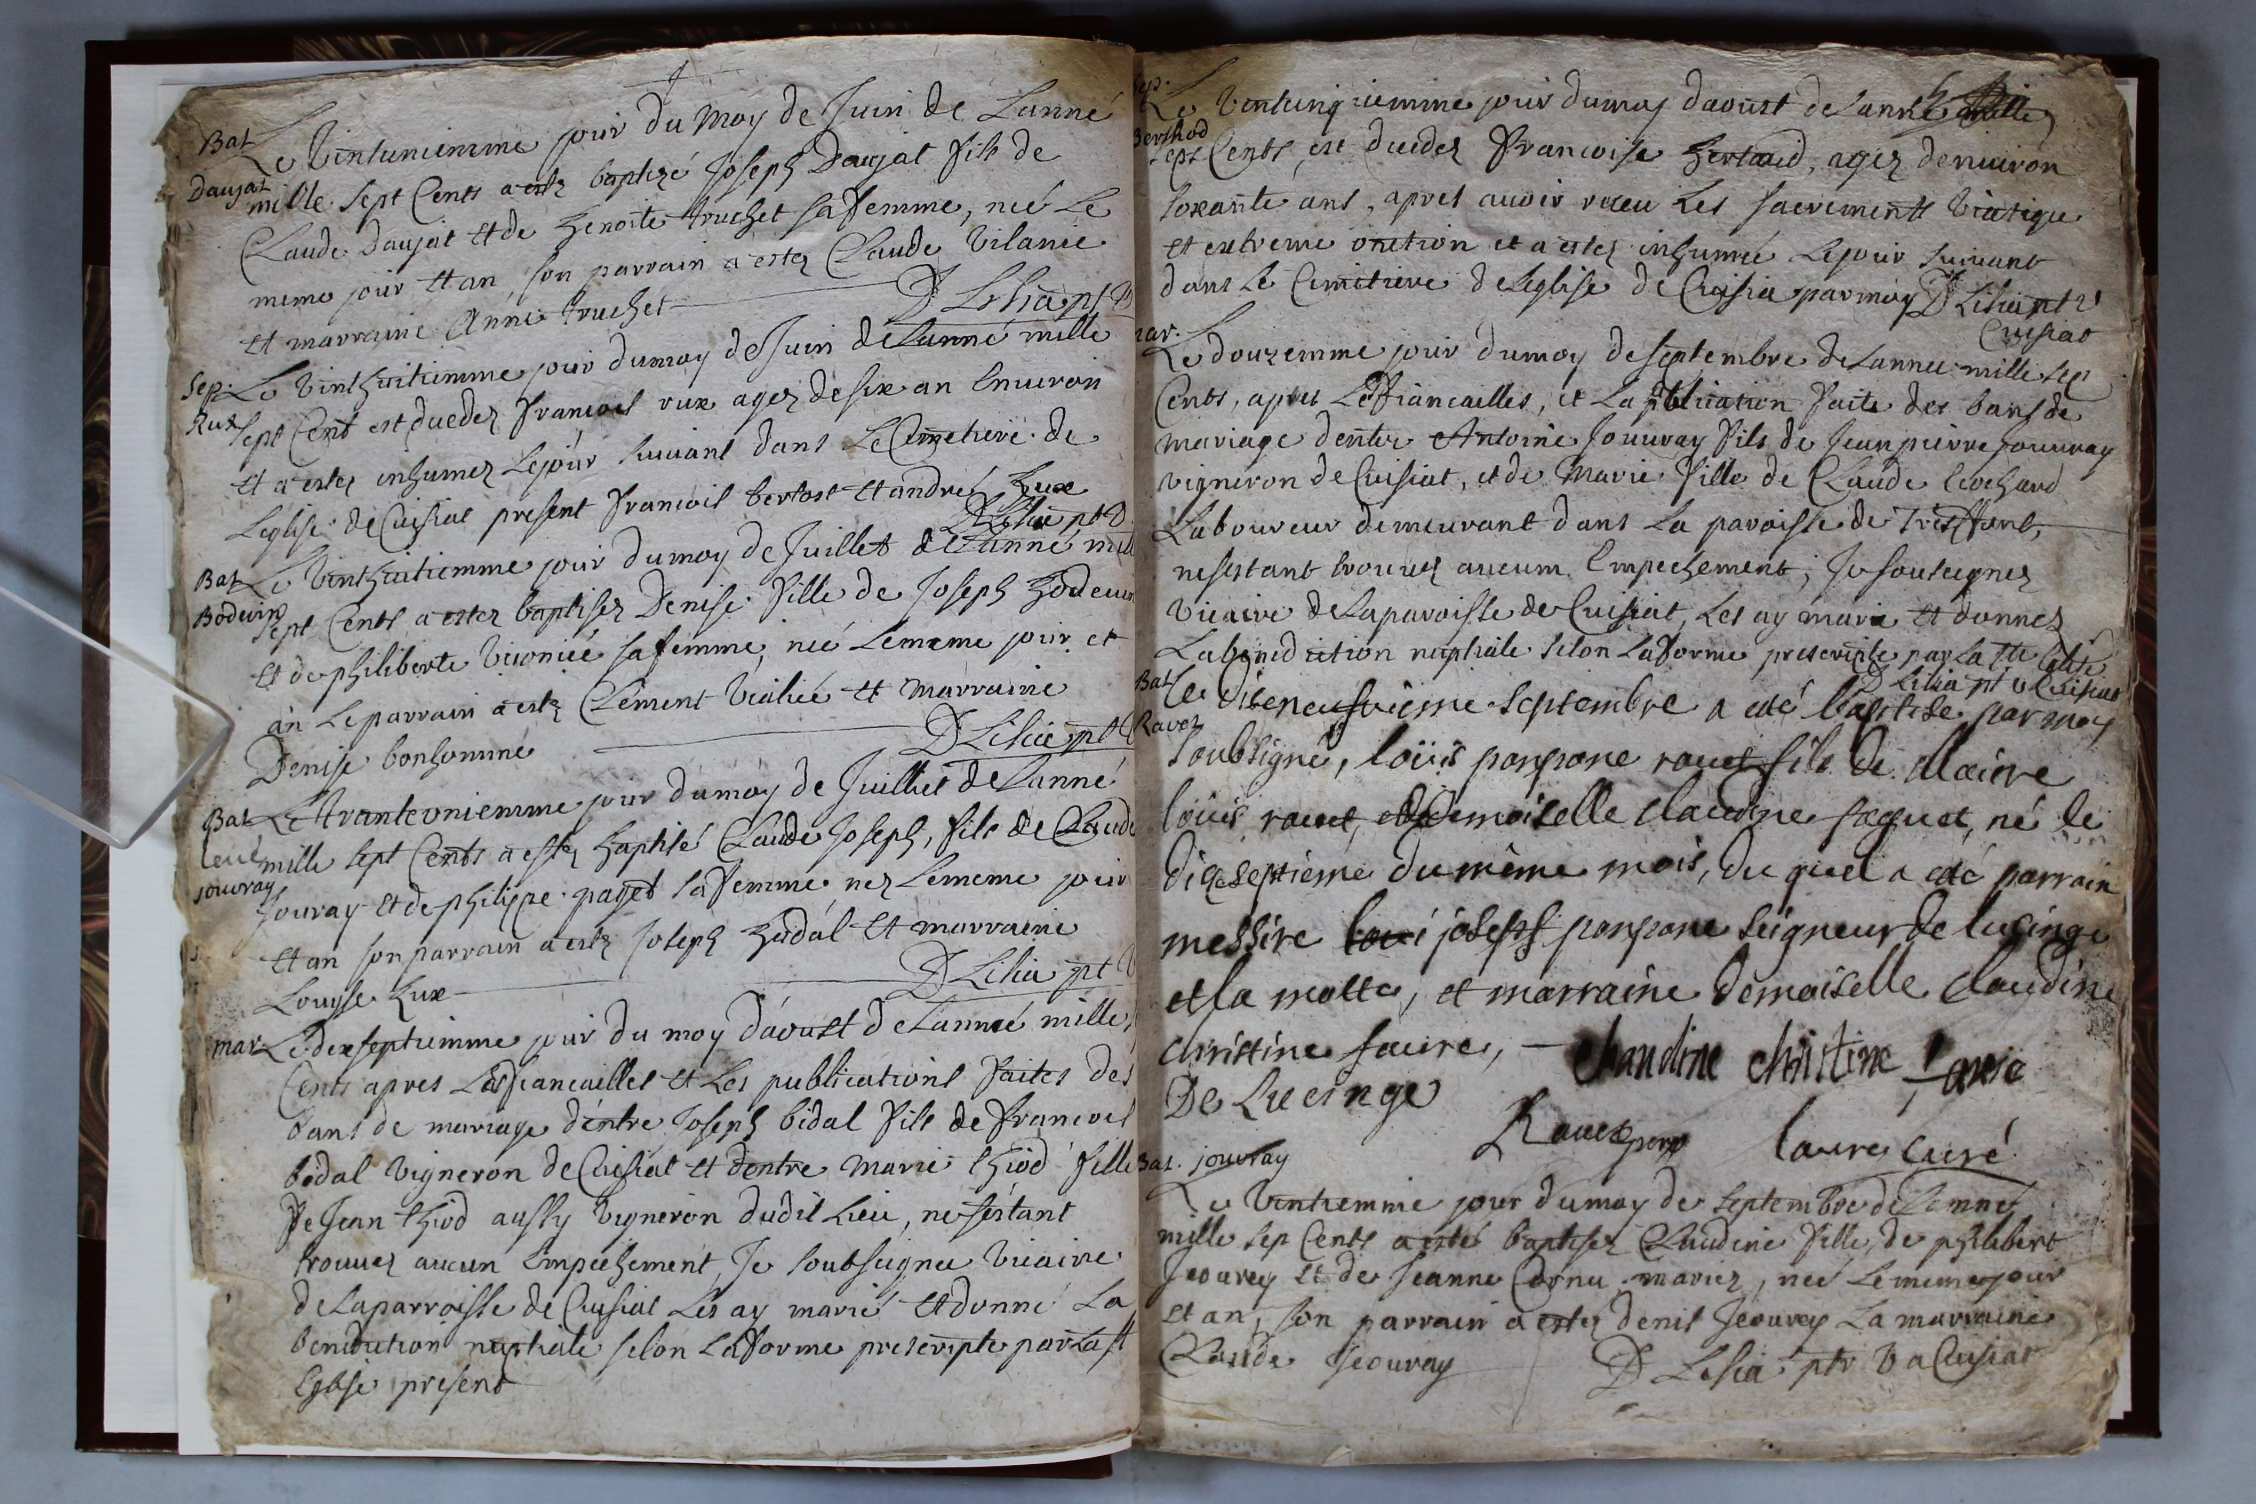 Bat Le Vintuniemme jour du Moy de Juin de Lanné
Daujat mille sept Cents a estez baptizé Joseph Daujat fils de
Claude Daujat et de benoite truchet sa femme, neé Le
meme jour et an, son parrain a estez Claude Vilanie
et marraine Anne truchet D Lilia pt V
Sep. Le Vinthuitiemme jour du moy de Juin de Lanné mille
Rux sept Cent est duedez François rux agez de six an Environ
et a estez inhumez Le jour suivant dans Le Cimetiere de
Leglise de Cuisiat present Francois bertost et andré Rux
D Lilia pt V
Bat Le Vinthuitiemme jour du moy de Juillet de Lanné mill
Boduin sept Cents a estez baptisez Denise fille de Joseph
et de philiberte sa femme, neé Le meme jour et
an Le parrain a estez Clement et marraine
Denise bonhomme D Lilia pt V
Bat Le tranteoniemme jour du moy de Juillet de Lanné
mille sept Cents a estez baptisé Claude Joseph, fils de Claude
jouvray Jouray et de philippe paget sa femme nez Le meme jour
et an son parrain a estez Joseph et marraine
Louyse Rux D Lilia pt V
mar Le dexseptiemme jour du moy d'avoust de Lanneé mille
Cents apres Les fiancailles et Les publications faites des
bans de mariage d'entre Joseph bidal fils de francois
bidal vigneron de Cuisiat et dentre Marie thiod fille
de Jean thiod aussy vigneron dudit Lieu, ne sestant
trouvez aucun Empechement, Je soubseignee Vicaire
de La parroisse de Cuisiat Les ay marié et donné La
benediction nuptiale selon La forme prescripte par La ste
Eglise present
Sep. Le Vintcinqiemme jour du moy davoust de Lanné mille
Berthod sept Cents, est duedez Francoise bertaud, agez denviron
soxante ans, apres avoir receu Les sacrements Viatique
et extreme onction et a estez inhumeé Le jour suivant
dans Le Cimitiere de Leglise de Cuisia par moy D Lilia pt V
Cuisiat
mar. Le douzemme jour du moy de septembre de Lannee mille sep
Cents, apres Les fiancailles, et La publication faite des bans de
mariage dentre Antoine Jouvray fils de Jean pierre Jouvray
vigneron de Cuisiat, et de Marie fille de Claude
Laboureur demeurant dans La paroisse de Treffort,
ne sestant trouvez aucum Empechement, Je souseignez
Vicaire de La paroisse de Cuisiat, Les ay marie et donnez
La benediction nuptiale selon La forme prescripte par La ste Eglise
D Lilia pt v Cuisiat
Bat Le diseneufvième septembre a eté baptisé par moy
Ravet soubsigné, loüis ponpone ravet fils de Maitre
loüis ravet, et demoiselle claudine paquet, né le
dixseptième du même mois, du quel a eté parrain
messire loui joseph ponpone seigneur de lucinge
et la motte, et marraine demoiselle claudine
christine favre, claudine christine favre
De Lucinge
Ravet pere laure curé
Bat. jouvray
Le Vintiemme jour du moy de septembre de Lannez
mille sep Cents a estés baptisez Claudine fille de philibert
Jeouvrey et de Jeanne Cornu mariez, neé Le meme jour
et an, son parrain a estez denis Jeouvrey La marraine
Claude Jeouvray D Lilia ptr V a Cuisiat